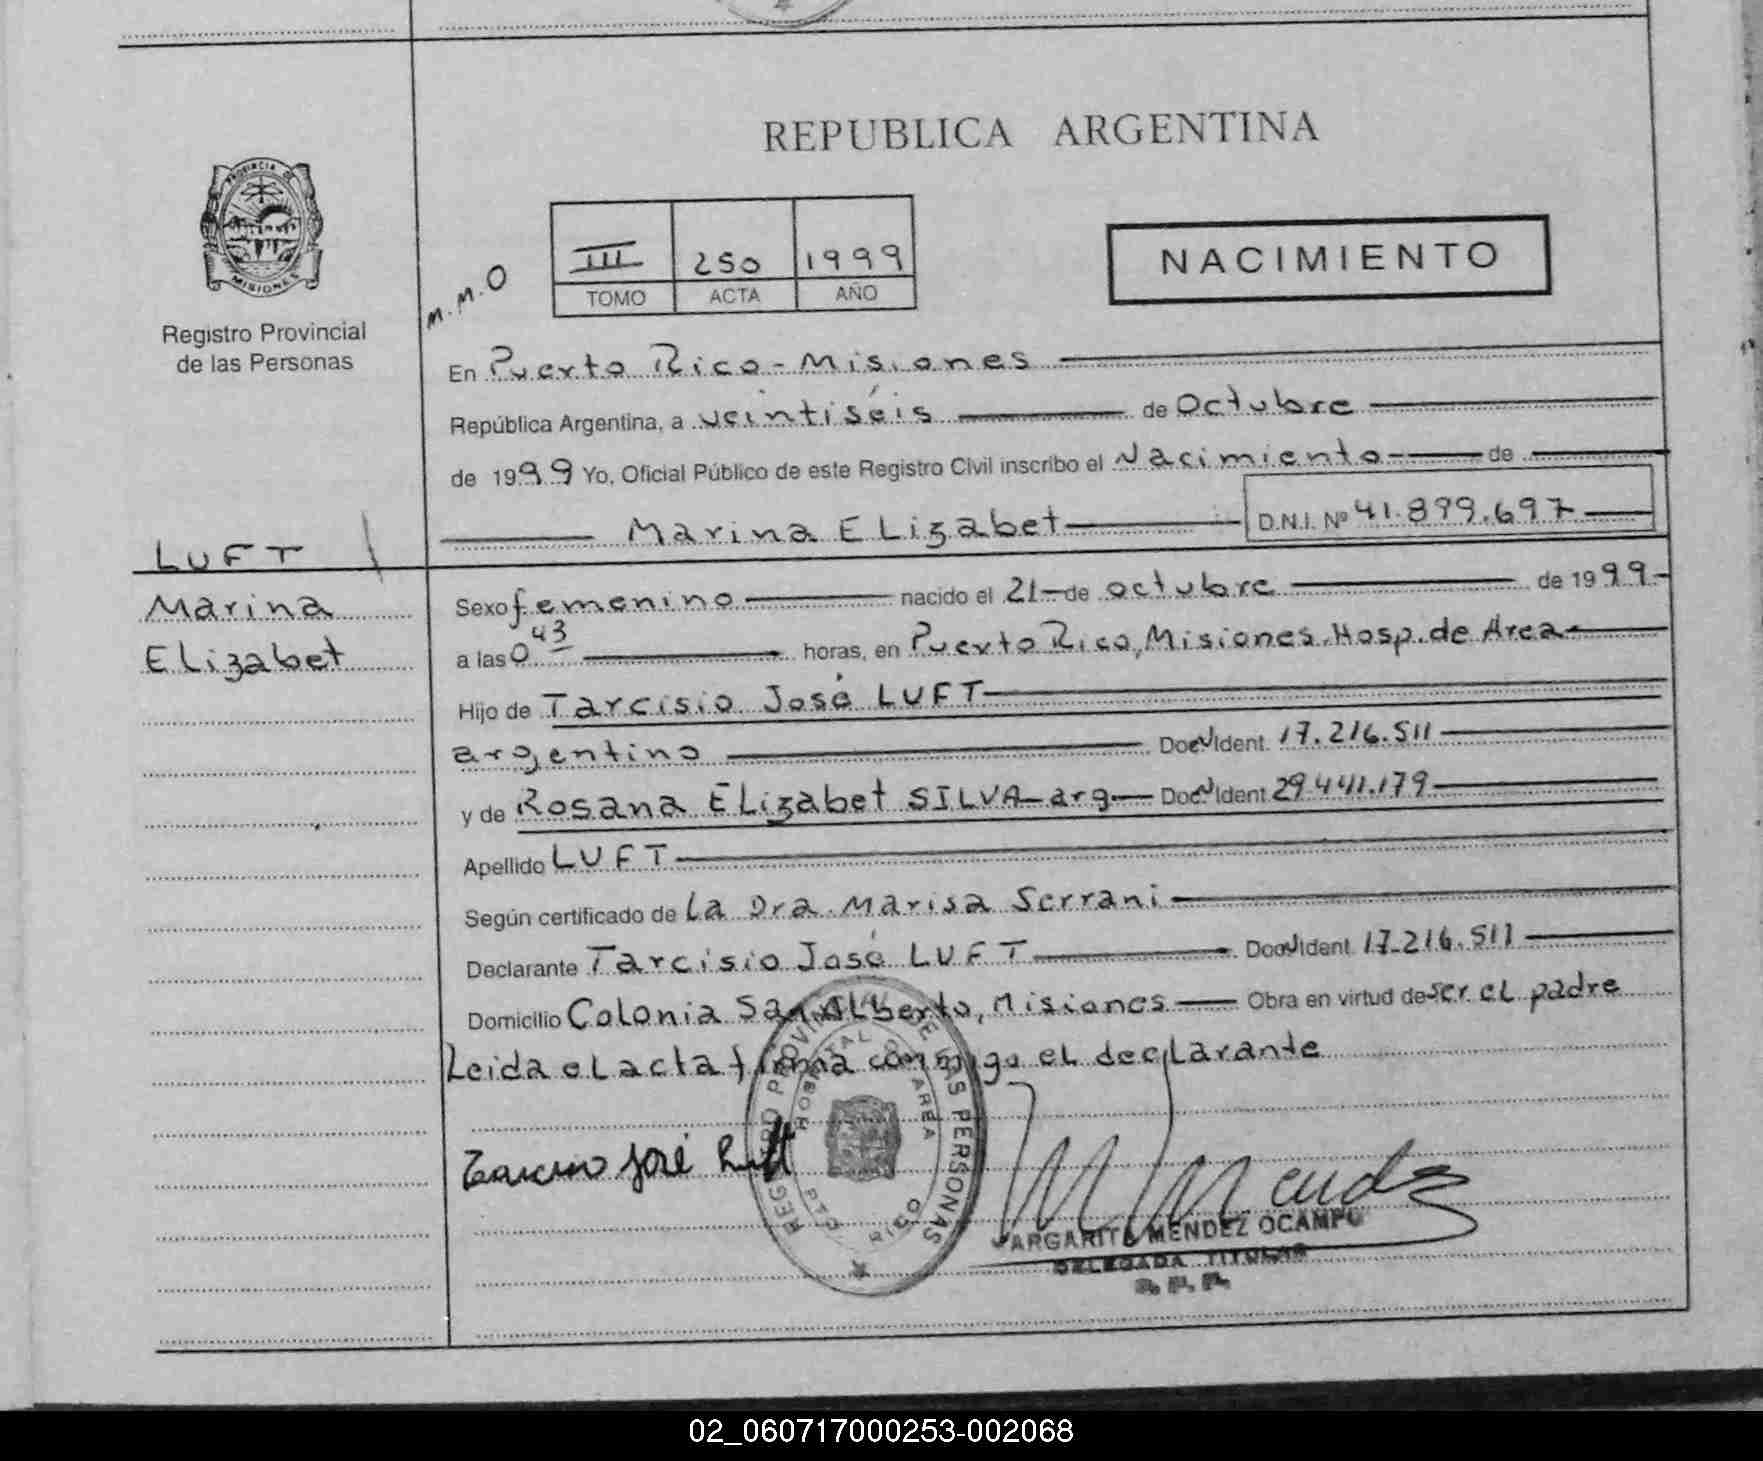 REPUBLICA ARGENTINA
PROVINCIA DE
MISIONES
Registro Provincial
de las Personas
M.M.O
III 250 1999
TOMO ACTA AÑO
NACIMIENTO
En Puerto Rico - Misiones
República Argentina, a veintiséis de Octubre
de 1999 Yo, Oficial Público de este Registro Civil inscribo el Nacimiento de
Marina ELizabet D.N.I. Nº 41.899.697
LUFT
Marina
ELizabet
Sexo femenino nacido el 21 de octubre de 1999
a las 0 43 horas, en Puerto Rico, Misiones. Hosp. de Area
Hijo de Tarcisio José LUFT
argentino Doc. Ident. 17.216.511
y de Rosana ELizabet SILVA arg Doc. Ident 29.441.179
Apellido LUFT
Según certificado de La Dra. Marisa Serrani
Declarante Tarcisio José LUFT Doc. Ident. 17.216.511
Domicilio Colonia San ALberto, Misiones Obra en virtud de ser el padre
Leida el acta firma conmigo el declarante
REGISTRO PROVINCIAL DE LAS PERSONAS
HOSPITAL AREA
PTO RICO
MARGARITA MENDEZ OCAMPO
DELEGADA TITULAR
R. P. P.
02_060717000253-002068